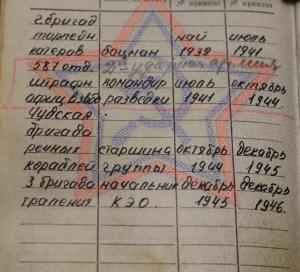 № приказа № приказа
2 бригад
торпедн. май июль
катеров боцман 1939 1941
587 отд. 2-я ударная армия
штрафн. командир июль октябрь
разведки 1941 1944
бригада
речных старшина октябрь декабрь
кораблей группы 1944 1945
3 бригада начальник декабрь декабрь
траления КЭО. 1945 1946.